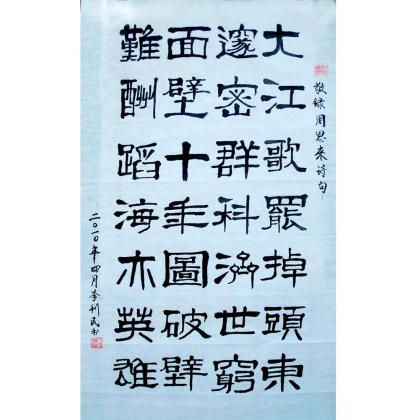 敬録周恩来诗句：
大江歌罷掉頭東
邃密群科済世窮
面壁十年圖破壁
難酬蹈海亦英雄
二〇一〇年四月李利民书